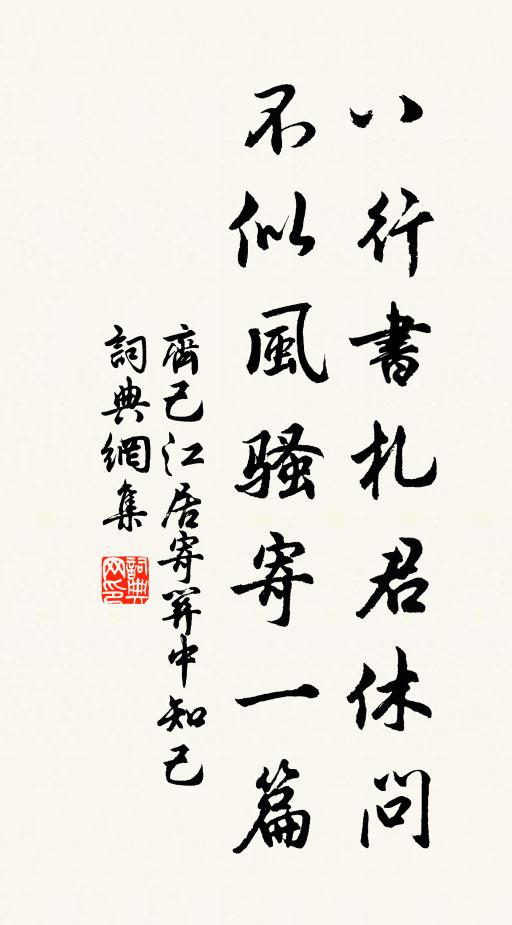 八行書札君休問
不似風騷寄一篇
齊己江居寄關中知己
詞典網集
詞典网印